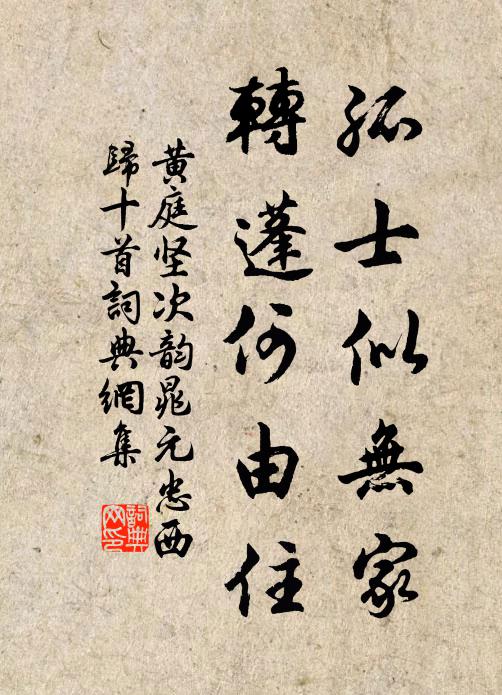 孤士似無家
轉蓬何由住
黄庭坚次韵晁元忠西
歸十首詞典網集
詞典网印